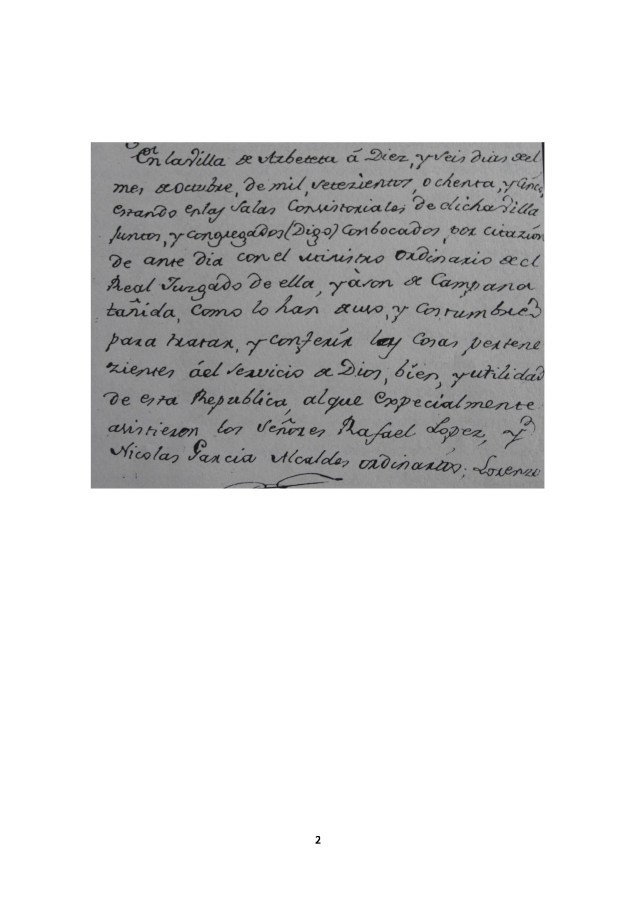 En la Villa de Arbeteta á Diez, y seis dias del
mes de octubre, de mil, setezientos, ochenta, y cinco
estando en las Salas Consistoriales de dicha Villa
Juntos, y congregados (Digo) Conbocados, por citazión
de ante dia con el ministro ordinario del
Real Juzgado de ella, y à son de Campana
tañida, como lo han de uso, y costumbre
para tratar, y conferír las Cosas pertene
zientes áel servicio de Dios, bien, y utilidad
de esta Republica, al que expecialmente
asistieron los Señores Rafael Lopez, y
Nicolas Garcia Alcaldes ordinarios: Lorenzo
2